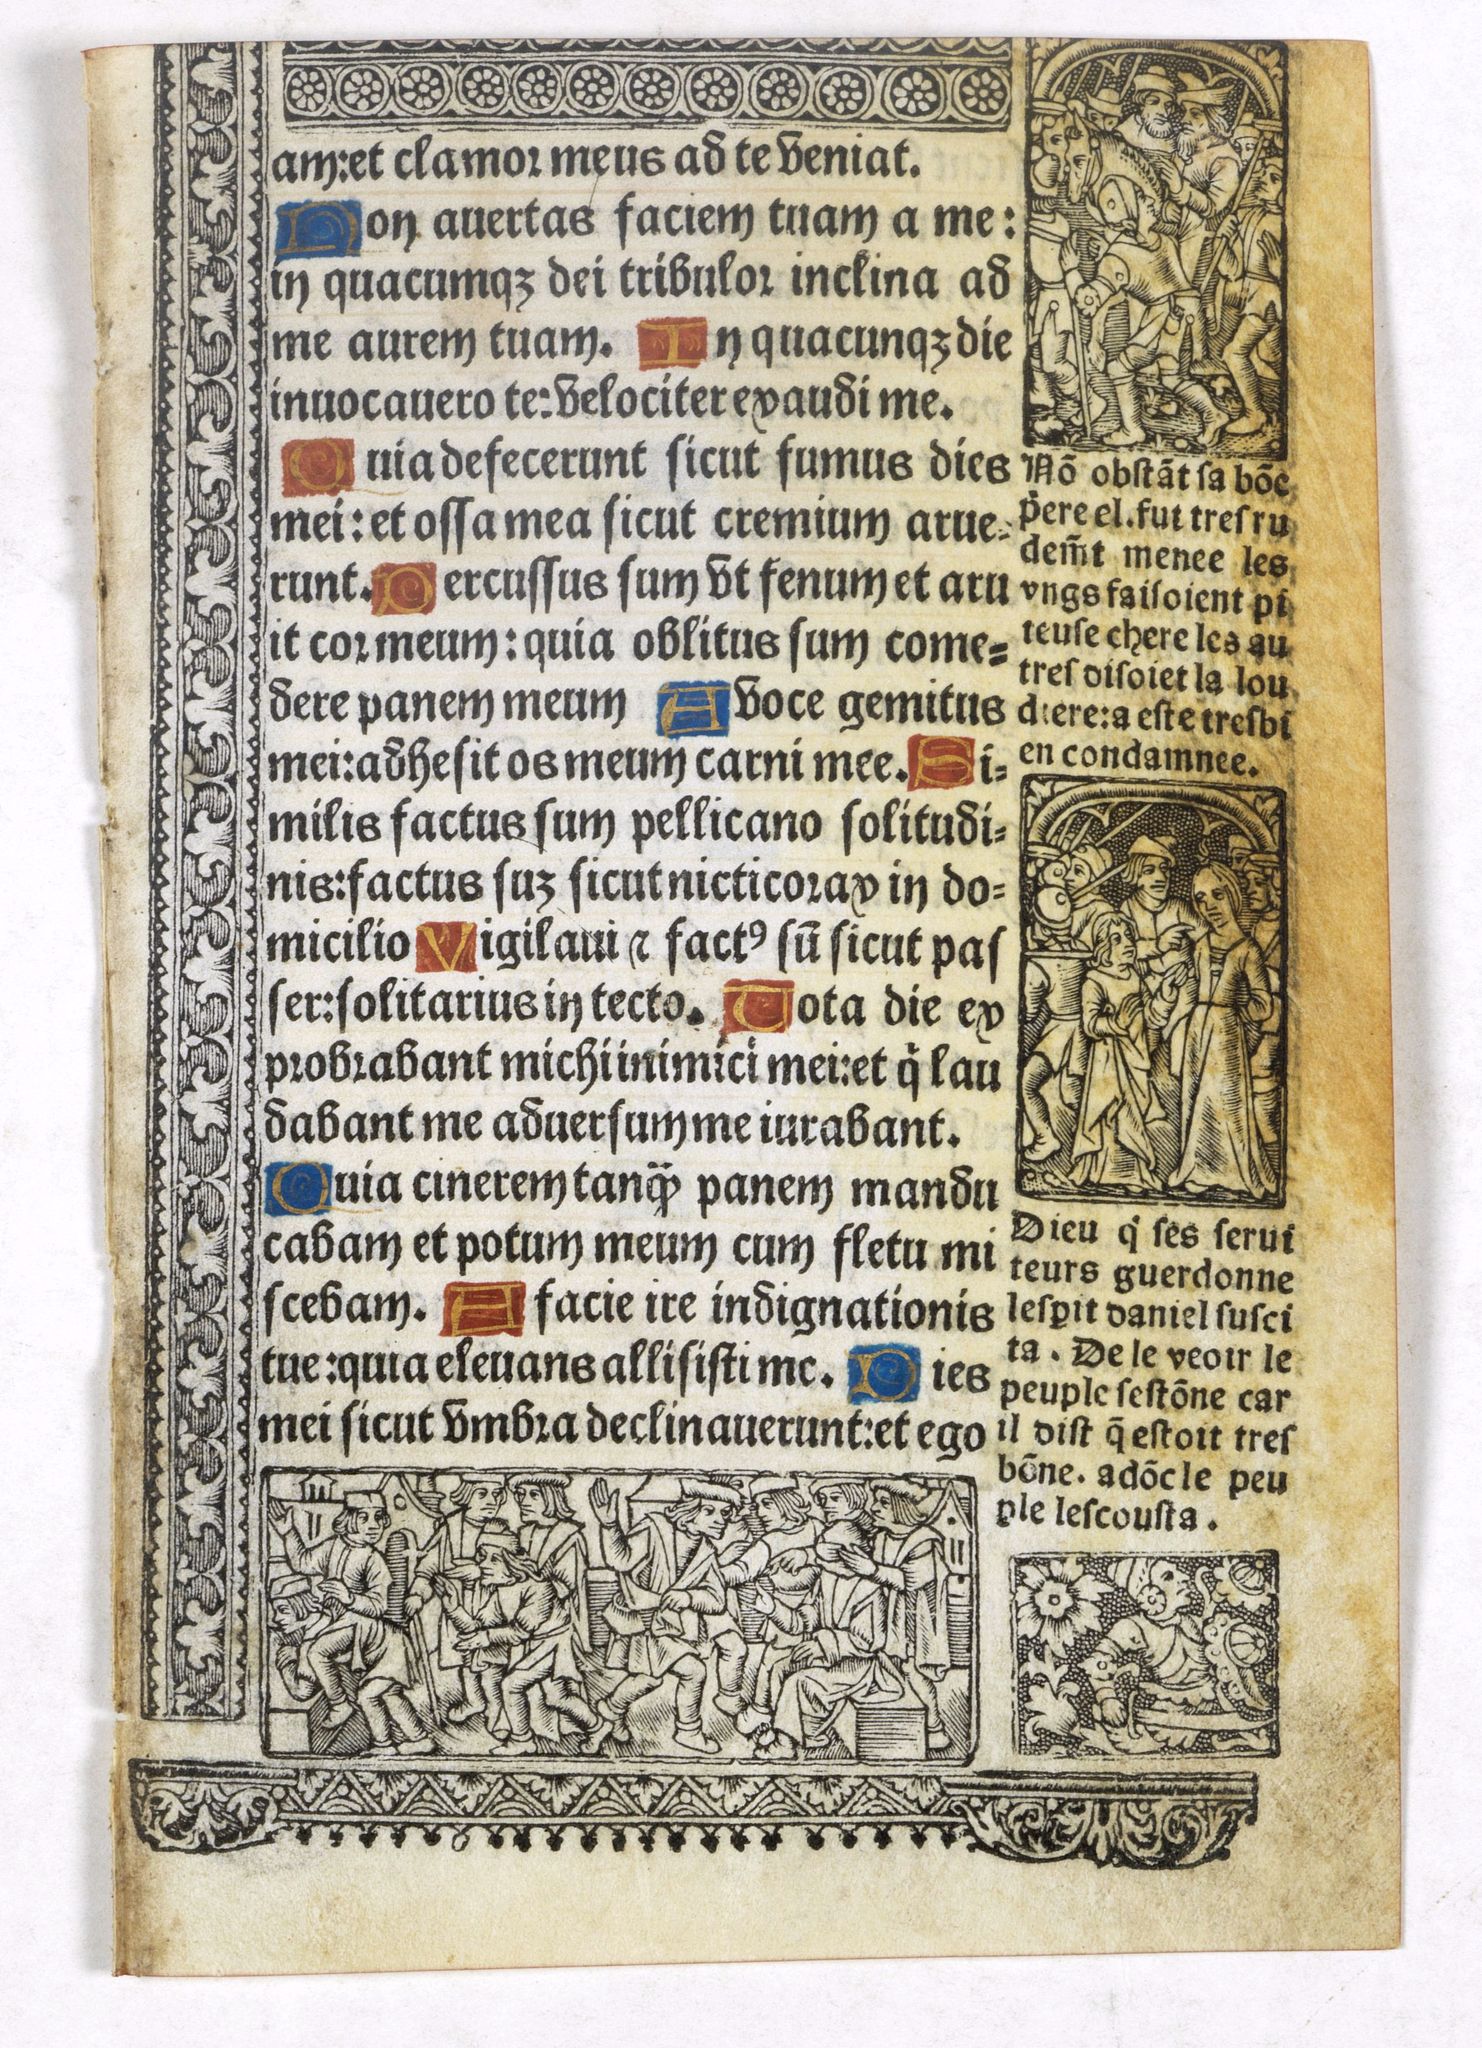 am:et clamor meus ad te veniat.
Non auertas faciem tuam a me:
in quacumqꝫ dei tribulor inclina ad
me aurem tuam. In quacunqꝫ die
inuocauero te: velociter exaudi me.
Quia defecerunt sicut fumus dies
mei: et ossa mea sicut cremium arue-
runt. Percussus sum vt fenum et aru
it cor meum: quia oblitus sum come-
dere panem meum A voce gemitus
mei: adhesit os meum carni mee. Si-
milis factus sum pellicano solitudi-
nis: factus suꝫ sicut nicticorax in do-
micilio Vigilaui ⁊ factꝰ sū sicut pas
ser: solitarius in tecto. Tota die ex
probrabant michi inimici mei: et q̇ lau
dabant me aduersum me iurabant.
Quia cinerem tanq̈ꝫ panem mandu
cabam et potum meum cum fletu mi
scebam. A facie ire indignationis
tue: quia eleuans allisisti me. Dies
mei sicut vmbra declinauerunt: et ego
Nō obstāt sa bōe
p̄ere el. fut tres ru
dem̄t menee les
vngs faisoient pi
teuse chere les au
tres disoiet la lou
diere: a este tresbi
en condamnee.
Dieu q̇ ses serui
teurs guerdonne
lesꝑit daniel susci
ta. De le veoir le
peuple sestōne car
il dist q̄ estoit tres
bōne. adōc le peu
ple lescousta.